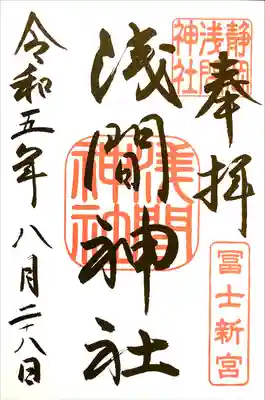 奉拝
静岡浅間神社
冨士新宮
浅間神社
浅間神社
令和五年八月二十八日